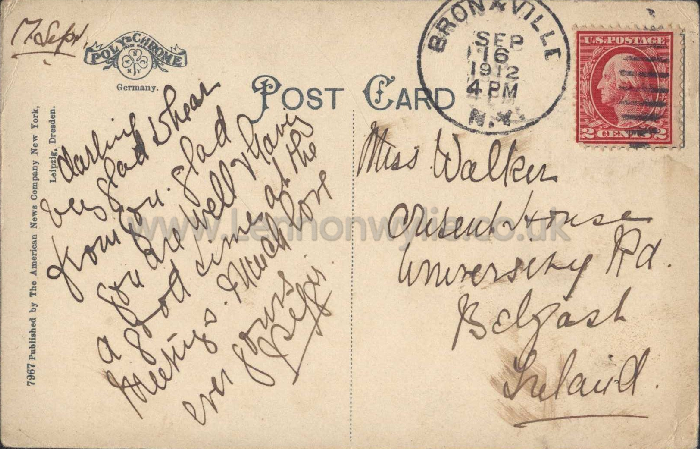 17 Sept.
POLY-CHROME
Germany.
POST CARD
BRONXVILLE
SEP
16
1912
4 PM
N.Y.
U.S. POSTAGE
2 CENTS 2
7967 Published by The American News Company New York,
Leipzig, Dresden.
darling
very glad to hear
from you. glad
you are well & having
a good time at the
meetings. Much love
ever yours
Miss Walker
University Rd.
Belfast
Ireland.
www.Lennonwylie.co.uk